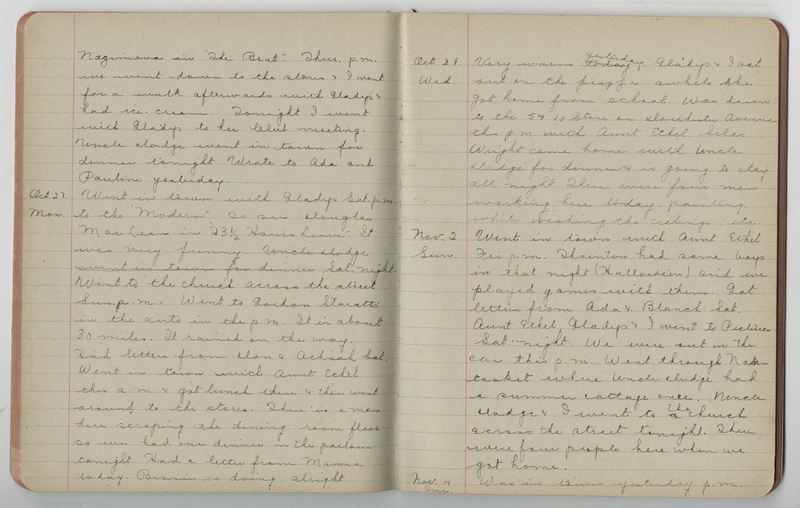 Nazimova in "The Brat". Thus. p.m.
we went down to the stores & I went
for a walk afterwards with Gladys &
had ice cream. Tonight I went
with Gladys to her Club meeting.
Uncle Sludge went in town for
dinner tonight. Wrote to Ada and
Pauline yesterday.
Oct 27. Went in town with Gladys Sat. p.m.
Mon. to the "Modern" to see Douglas
MacLean in "23½ Hours Leave" It
was very funny. Uncle Sludge
went in town for dinner Sat. night.
Went to the church across the street
Sun p.m. Went to Gordon
in the auto in the p.m. It is about
30 miles. It rained on the way.
Had letters from & Sat.
Went in town with Aunt Ethel
this a.m. & got lunch there & then went
around to the stores. There is a man
here scraping the dining-room floor
so we had our dinner in the parlour
tonight. Had a letter from Mamma
today. is doing alright.
Oct 29. Very warm yesterday today. Gladys & I sat
Wed. out on the piazza awhile she
got home from school. Was down
to the 5 & 10 store on Dorchester Avenue
this p.m. with Aunt Ethel. Silas
Wright came home with Uncle
Sludge for dinner & is going to stay
all night. There were four men
working here today painting,
white washing the ceilings, etc.
Nov. 2 Went in town with Aunt Ethel
Sun. Fri p.m. Thornton had some boys
in that night (Hallowe'en) and we
played games with them. Got
letters from Ada & Blanch Sat.
Aunt Ethel, Gladys & I went to Pictures
Sat. night. We were out in the
car this p.m. Went through Nan-
tasket where Uncle Sludge had
a summer cottage once. Uncle
Sludge & I went to the a church
across the street tonight. There
were four people here when we
got home.
Nov. 4 Was in town yesterday p.m.
Tues.